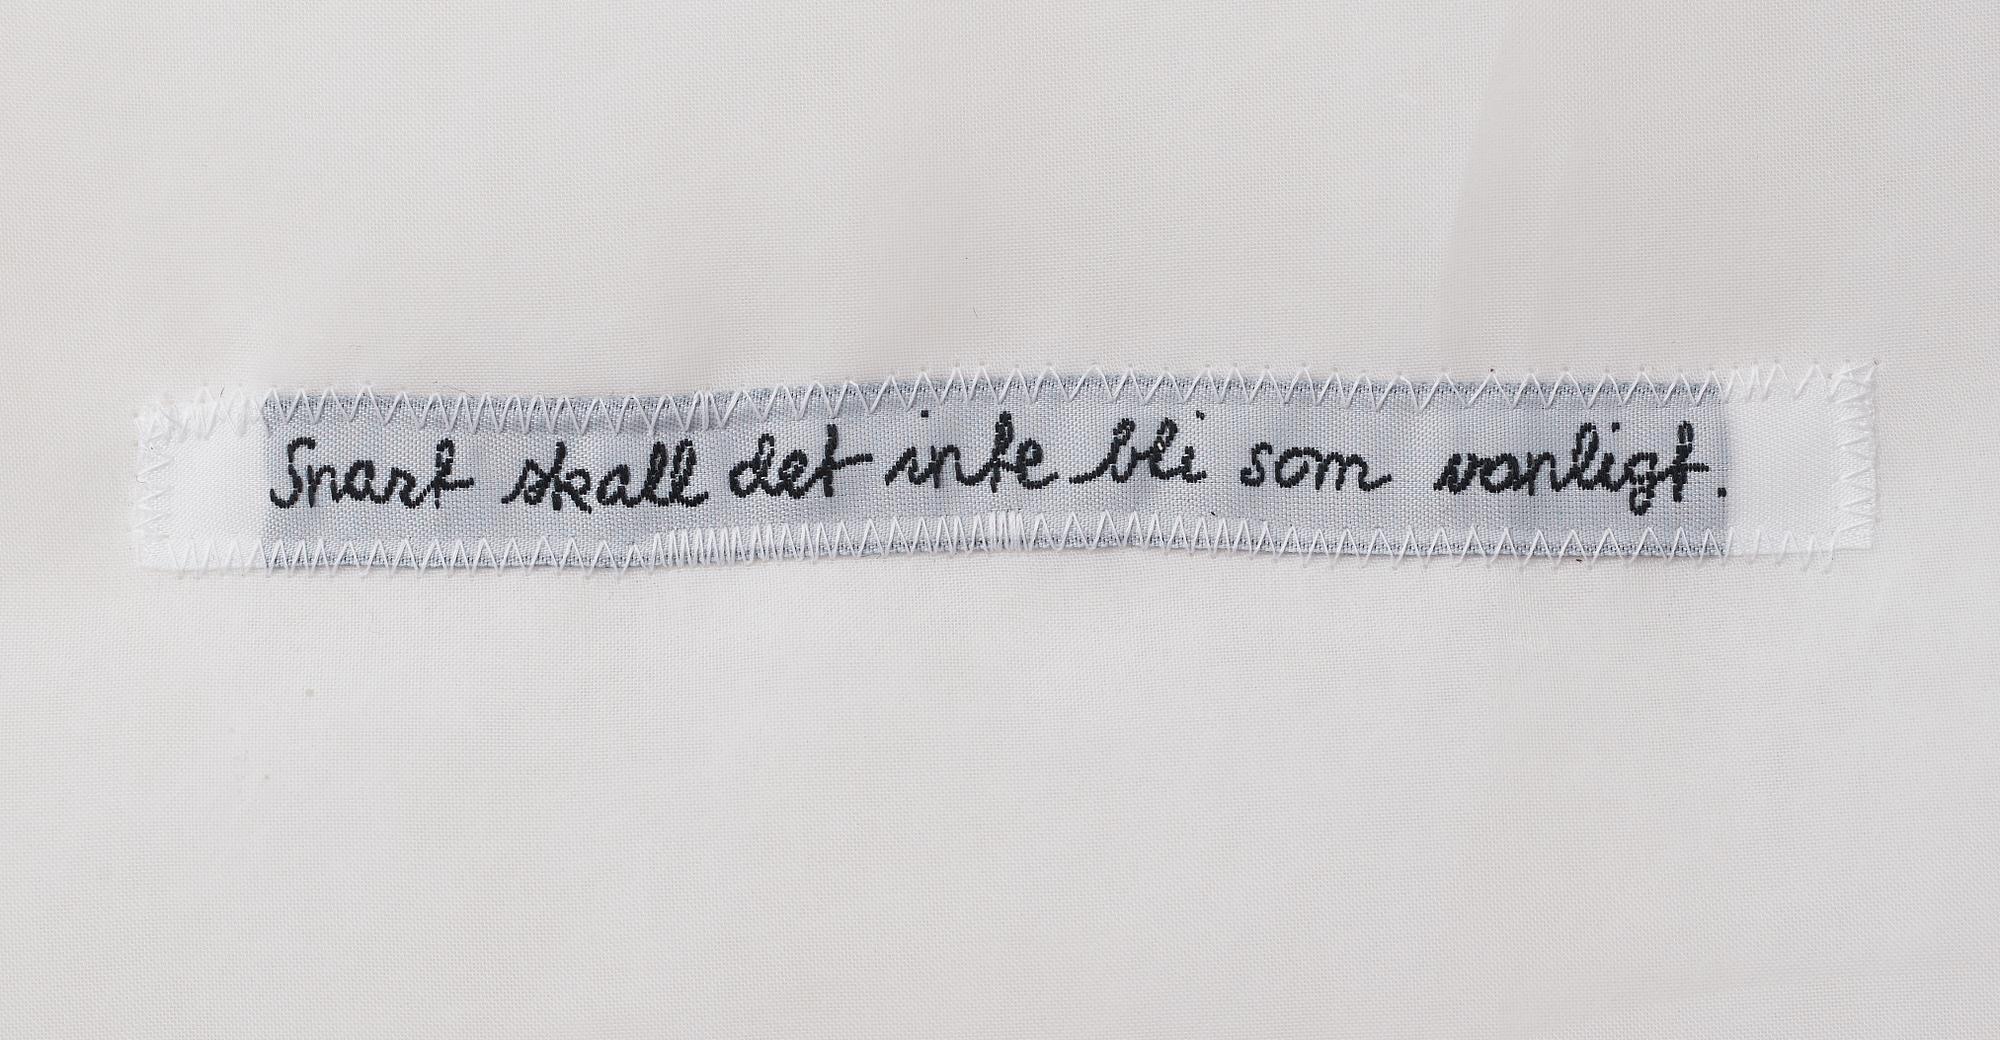 Snart skall det inte bli som vanligt.